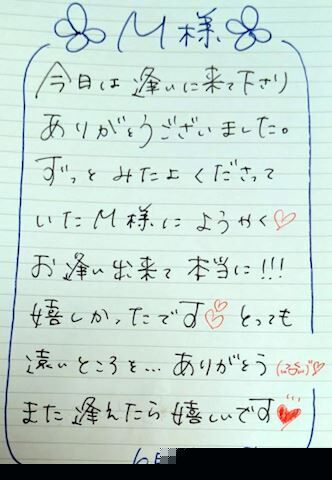 M様
今日は逢いに来て下さり
ありがとうございました。
ずっと みたよくださって
いた M様に ようやく♡
お逢い出来て 本当に!!!
嬉しかったです♡ とっても
遠いところを... ありがとう
また 逢えたら 嬉しいです♥